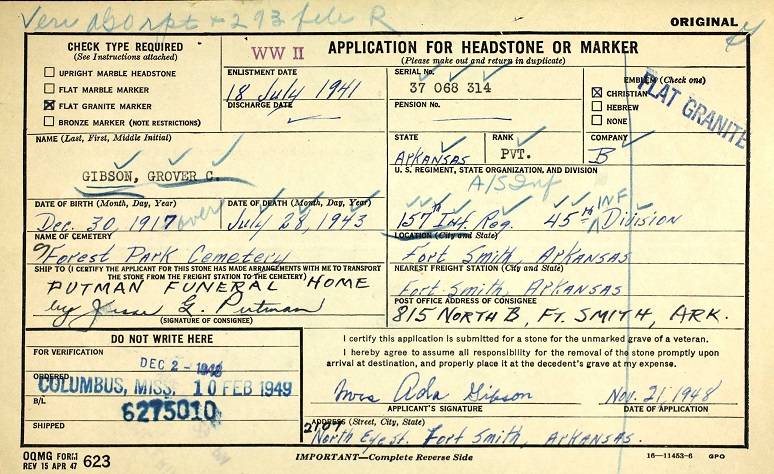 Veri 260 rpt + 293 file R
ORIGINAL
CHECK TYPE REQUIRED
(See Instructions attached)
UPRIGHT MARBLE HEADSTONE
FLAT MARBLE MARKER
☒ FLAT GRANITE MARKER
BRONZE MARKER (NOTE RESTRICTIONS)
WW II
APPLICATION FOR HEADSTONE OR MARKER
(Please make out and return in duplicate)
ENLISTMENT DATE
18 July 1941
DISCHARGE DATE
SERIAL No.
37 068 314
PENSION No.
EMBLEM (Check one)
☒ CHRISTIAN
HEBREW
NONE
FLAT GRANITE
NAME (Last, First, Middle Initial)
GIBSON, GROVER C.
STATE
ARKANSAS
RANK
PVT.
COMPANY
B
U. S. REGIMENT, STATE ORGANIZATION, AND DIVISION
A/S Inf
157th Inf. Reg. 45th INF Division
DATE OF BIRTH (Month, Day, Year)
Dec. 30, 1917 over
DATE OF DEATH (Month, Day, Year)
July 28, 1943
NAME OF CEMETERY
Forest Park Cemetery
LOCATION (City and State)
Fort Smith, Arkansas
SHIP TO (I CERTIFY THE APPLICANT FOR THIS STONE HAS MADE ARRANGEMENTS WITH ME TO TRANSPORT
THE STONE FROM THE FREIGHT STATION TO THE CEMETERY)
PUTMAN FUNERAL HOME
by Jesse G. Putman
(SIGNATURE OF CONSIGNEE)
NEAREST FREIGHT STATION (City and State)
Fort Smith, Arkansas
POST OFFICE ADDRESS OF CONSIGNEE
815 NORTH B, FT. SMITH, ARK.
DO NOT WRITE HERE
FOR VERIFICATION
DEC 2 - 1948
ORDERED
COLUMBUS, MISS. 10 FEB 1949
B/L
6275010
SHIPPED
I certify this application is submitted for a stone for the unmarked grave of a veteran.
I hereby agree to assume all responsibility for the removal of the stone promptly upon
arrival at destination, and properly place it at the decedent's grave at my expense.
Mrs Ada Gibson Nov. 21, 1948
APPLICANT'S SIGNATURE DATE OF APPLICATION
ADDRESS (Street, City, State)
2107 North Eye st. Fort Smith, Arkansas.
OQMG FORM
REV 15 APR 47 623
IMPORTANT—Complete Reverse Side
16—11453-6 GPO